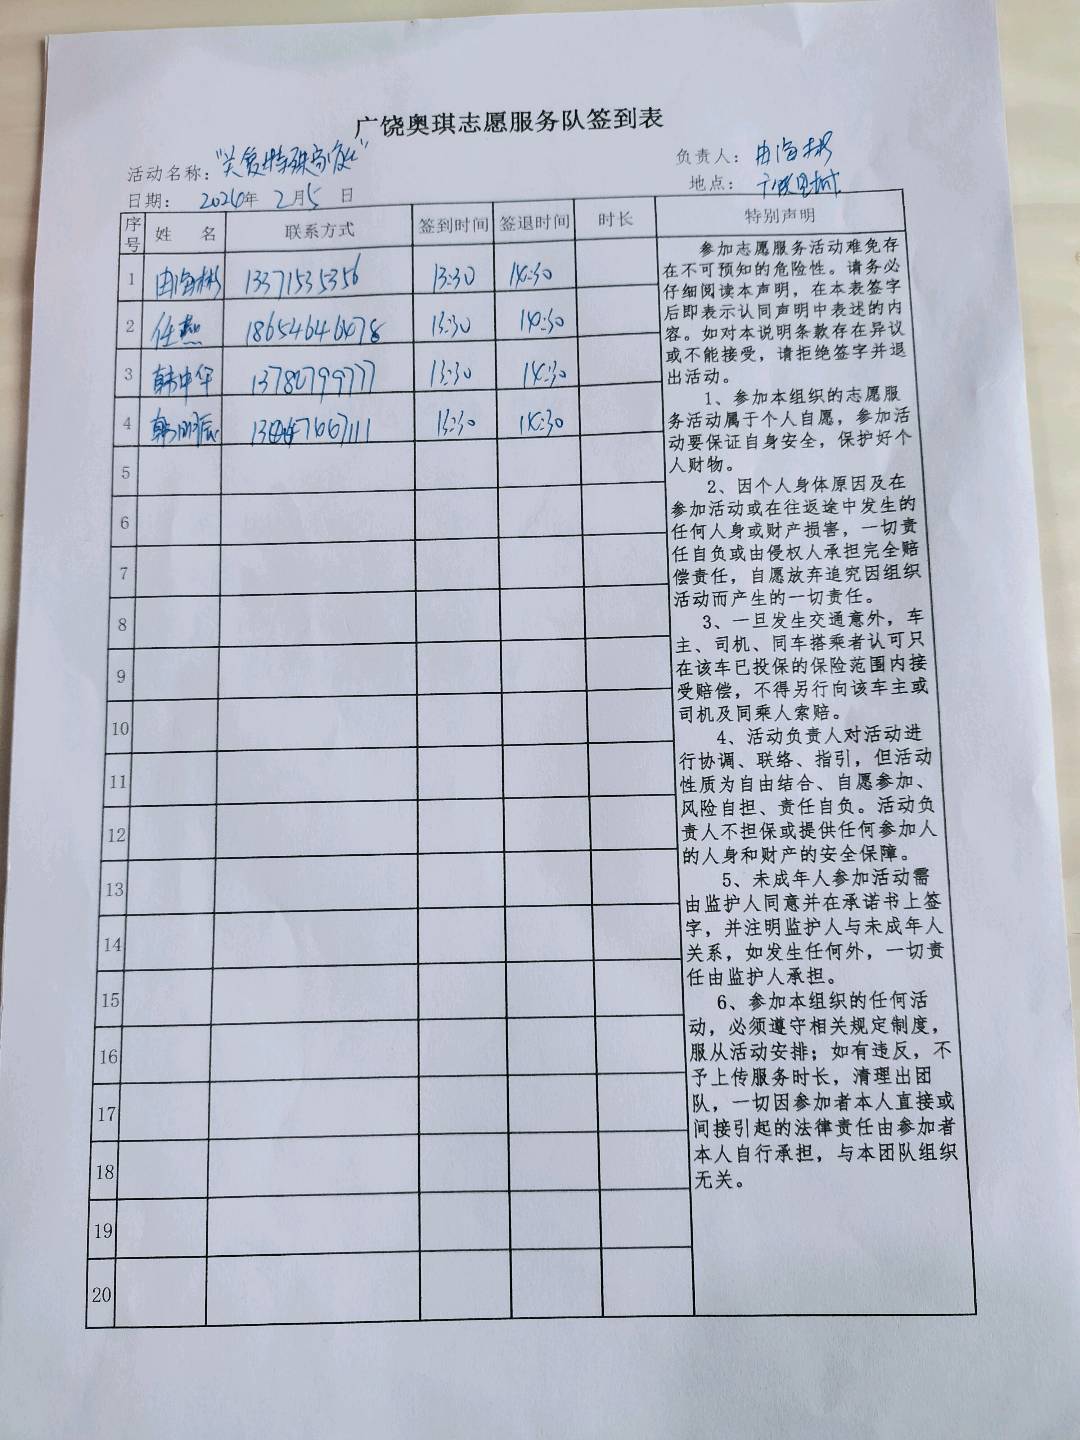 广饶奥琪志愿服务队签到表
活动名称："关爱特殊家庭"
负责人：由海彬
日期： 2026年 2月5 日
地点：
序号 姓 名 联系方式 签到时间 签退时间 时长 特别声明
1 由海彬 13371535356 13:30 14:30
2 任燕 18654646078 13:30 14:30
3 韩中华 13780799777 13:30 14:30
4 13:30 14:30
5
6
7
8
9
10
11
12
13
14
15
16
17
18
19
20
参加志愿服务活动难免存
在不可预知的危险性。请务必
仔细阅读本声明，在本表签字
后即表示认同声明中表述的内
容。如对本说明条款存在异议
或不能接受，请拒绝签字并退
出活动。
1、参加本组织的志愿服
务活动属于个人自愿，参加活
动要保证自身安全，保护好个
人财物。
2、因个人身体原因及在
参加活动或在往返途中发生的
任何人身或财产损害，一切责
任自负或由侵权人承担完全赔
偿责任，自愿放弃追究因组织
活动而产生的一切责任。
3、一旦发生交通意外，车
主、司机、同车搭乘者认可只
在该车已投保的保险范围内接
受赔偿，不得另行向该车主或
司机及同乘人索赔。
4、活动负责人对活动进
行协调、联络、指引，但活动
性质为自由结合、自愿参加、
风险自担、责任自负。活动负
责人不担保或提供任何参加人
的人身和财产的安全保障。
5、未成年人参加活动需
由监护人同意并在承诺书上签
字，并注明监护人与未成年人
关系，如发生任何外，一切责
任由监护人承担。
6、参加本组织的任何活
动，必须遵守相关规定制度，
服从活动安排；如有违反，不
予上传服务时长，清理出团
队，一切因参加者本人直接或
间接引起的法律责任由参加者
本人自行承担，与本团队组织
无关。